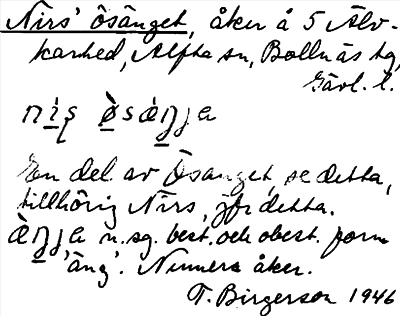 Nirs' Ösänget, åker å 5 Älv-
karhed, Alfta sn, Bollnäs tg,
Gävl. l.
En del av Ösänget, se detta,
tillhörig Nirs, jfr detta.
n. sg. best. och obest. form
'äng'. Numera åker.
T. Birgerson 1946